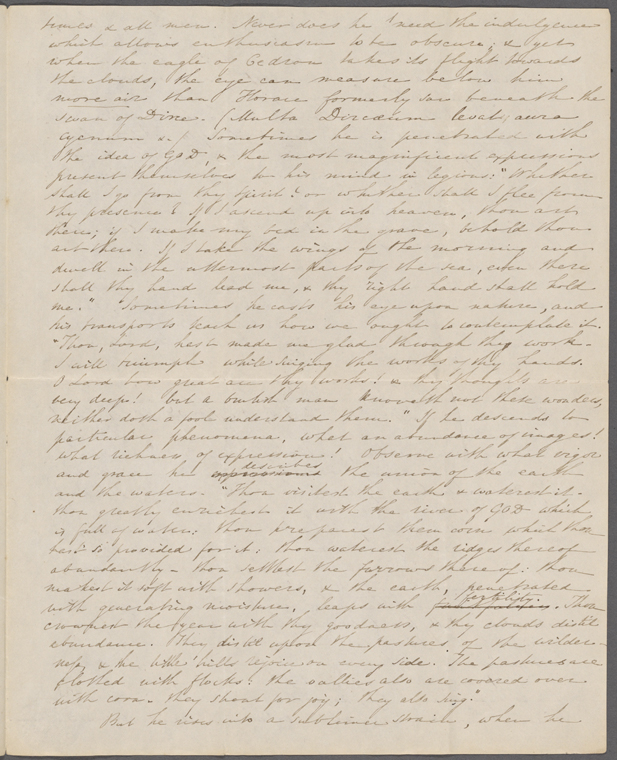 times & all men. Never does he need the indulgence
which allows enthusiasm to be obscure; & yet
when the eagle of Cedron takes its flight towards
the clouds, the eye can measure below him
more air than Horace formerly saw beneath the
swan of Dirce. (Multa Dircæum levat aura
cycnum &c.) Sometimes he is penetrated with
the idea of GOD, & the most magnificent expressions
present themselves to his mind in legions: "Whither
shall I go from thy Spirit? or whither shall I flee from
thy presence? If I ascend up into heaven, thou art
there; if I make my bed in the grave, behold thou
art there. If I take the wings of the morning and
dwell in the uttermost parts of the sea, even there
shall thy hand lead me, & thy right hand shall hold
me." Sometimes he casts his eye upon nature, and
his transports teach us how we ought to contemplate it.
"Thou, Lord, hast made me glad through thy work -
I will triumph while singing the works of thy hands.
O Lord how great are thy works! & thy thoughts are
very deep! but a brutish man knoweth not these wonders,
neither doth a fool understand them." If he descends to
particular phenomena, what an abundance of images!
what richness of expressions! Observe with what vigor
and grace he describes the union of the earth
and the waters. "Thou visitest the earth & waterest it -
thou greatly enrichest it with the river of GOD which
is full of water; thou preparest them corn which thou
hast so provided for it; thou waterest the ridges thereof
abundantly - thou settlest the furrows thereof: thou
makest it soft with showers, & the earth, penetrated
with generating moisture, leaps with fertility. Thou
crownest the year with thy goodness, & thy clouds distil
abundance. They distil upon the pastures of the wilder-
ness, & the little hills rejoice on every side. The pastures are
clothed with flocks: the vallies also are covered over
with corn - they shout for joy; they also sing."
But he rises into a sublimer strain, when he